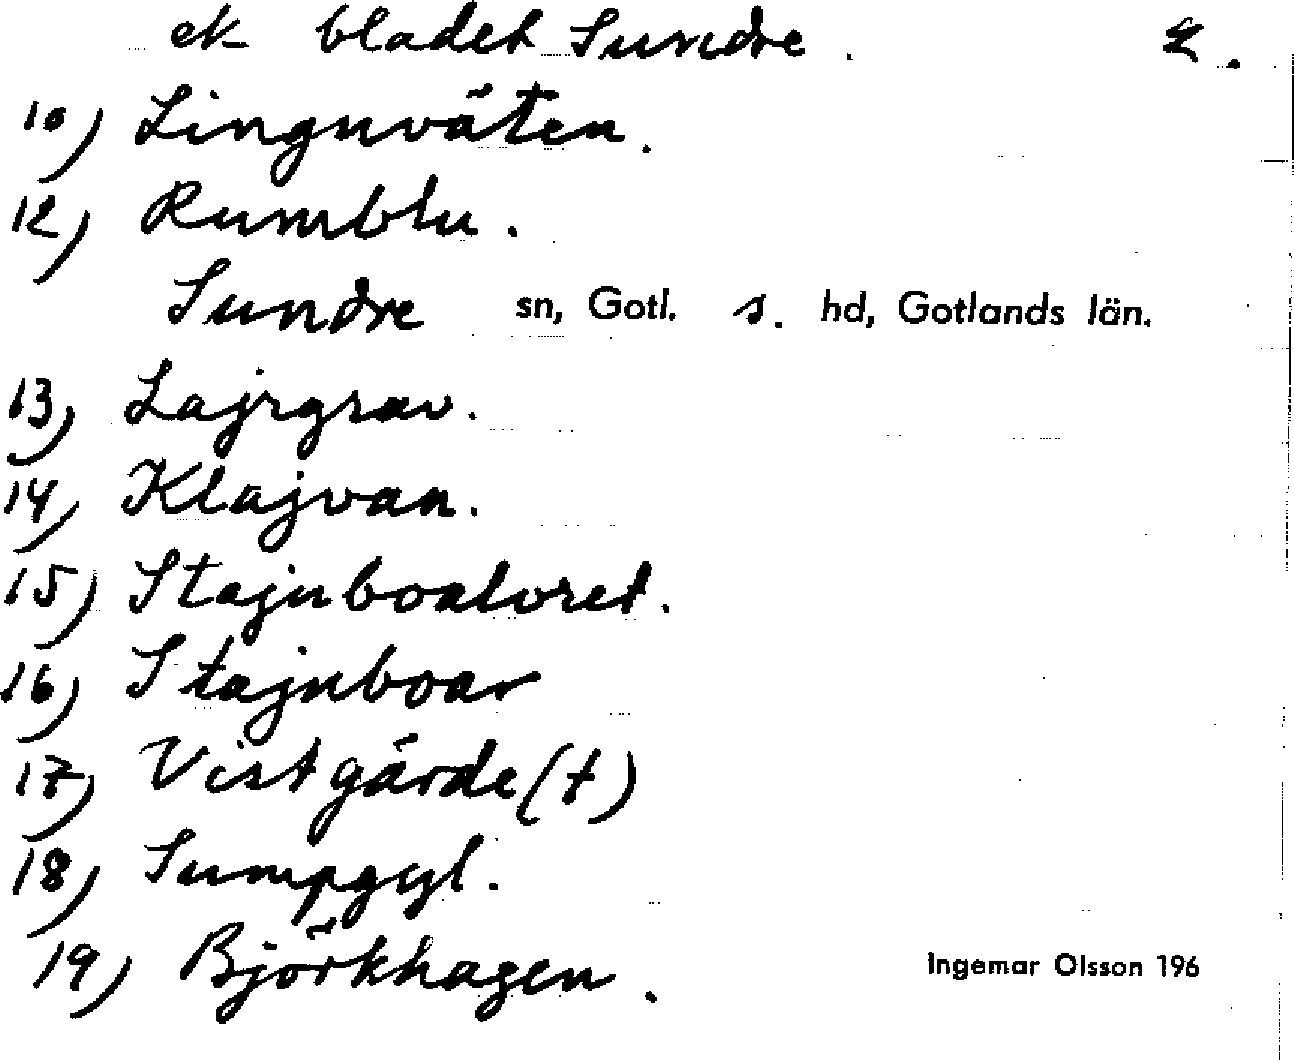 ek bladet Sundre. 2.
10) Linguväten.
12) Rumblu.
Sundre sn, Gotl. s. hd, Gotlands län.
13) Lajrgrav.
14) Klajvan.
15) Stajnboalvret.
16) Stajnboar
17) Vistgärde(t)
18) Sumpgyl.
19) Björkhagen.
Ingemar Olsson 196